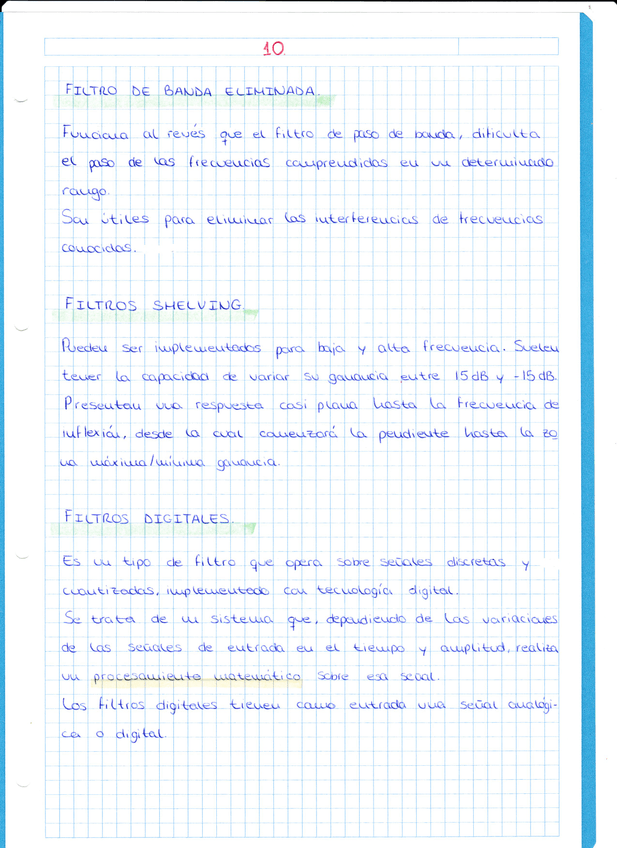 10
FILTRO DE BANDA ELIMINADA.
Funciona al revés que el filtro de paso de banda, dificulta
el paso de las frecuencias comprendidas en un determinado
rango.
Son útiles para eliminar las interferencias de frecuencias
conocidas.
FILTROS SHELVING.
Pueden ser implementados para baja y alta frecuencia. Suelen
tener la capacidad de variar su ganancia entre 15 dB y -15 dB.
Presentan una respuesta casi plana hasta la frecuencia de
inflexión, desde la cual comenzará la pendiente hasta la zo
na máxima/mínima ganancia.
FILTROS DIGITALES.
Es un tipo de filtro que opera sobre señales discretas y
cuantizadas, implementado con tecnología digital.
Se trata de un sistema que, dependiendo de las variaciones
de las señales de entrada en el tiempo y amplitud, realiza
un procesamiento matemático sobre esa señal.
Los filtros digitales tienen como entrada una señal analógi-
ca o digital.